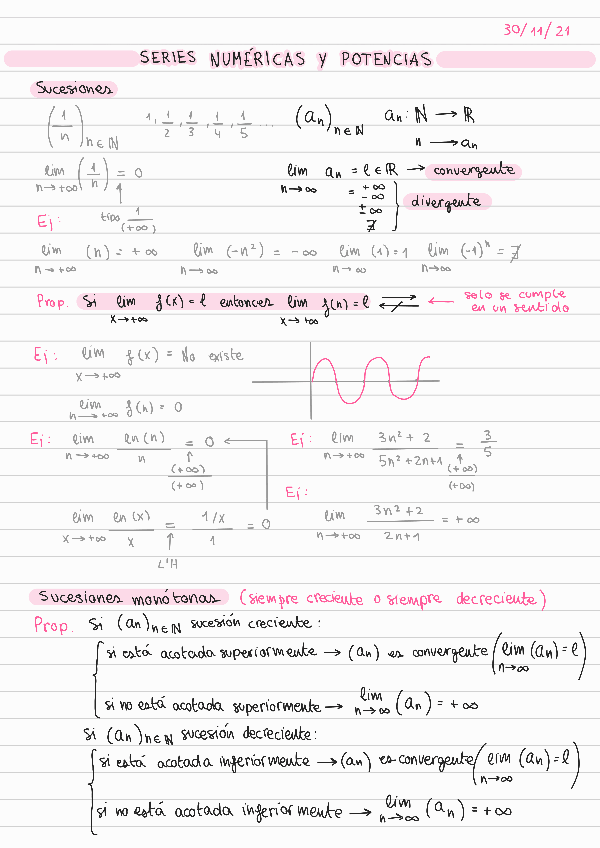 30/11/21
SERIES NUMÉRICAS Y POTENCIAS
Sucesiones
(1/n)n∈ℕ 1, 1/2, 1/3, 1/4, 1/5 ... (an)n∈ℕ an: ℕ → ℝ
n → an
lim n→+∞ (1/n) = 0 lim n→∞ an = l ∈ ℝ → convergente
tipo 1/(+∞)
= +∞
-∞
±∞
∄
divergente
Ej:
lim n→+∞ (n) = +∞ lim n→∞ (-n²) = -∞ lim n→∞ (1) = 1 lim n→∞ (-1)ⁿ = ∄
Prop. Si lim x→+∞ f(x) = l entonces lim x→+∞ f(n) = l ← solo se cumple
en un sentido
Ej: lim x→+∞ f(x) = No existe
lim n→+∞ f(n) = 0
Ej: lim n→+∞ ln(n)/n = 0
(+∞)/(+∞)
Ej: lim n→+∞ (3n² + 2)/(5n² + 2n + 1) = 3/5
(+∞)
(+∞)
Ej:
lim x→+∞ ln(x)/x = (1/x)/1 = 0
L'H
lim n→+∞ (3n² + 2)/(2n + 1) = +∞
Sucesiones monótonas (siempre creciente o siempre decreciente)
Prop. Si (an)n∈ℕ sucesión creciente:
si está acotada superiormente → (an) es convergente (lim n→∞ (an) = l)
si no está acotada superiormente → lim n→∞ (an) = +∞
Si (an)n∈ℕ sucesión decreciente:
si está acotada inferiormente → (an) es convergente (lim n→∞ (an) = l)
si no está acotada inferiormente → lim n→∞ (an) = +∞